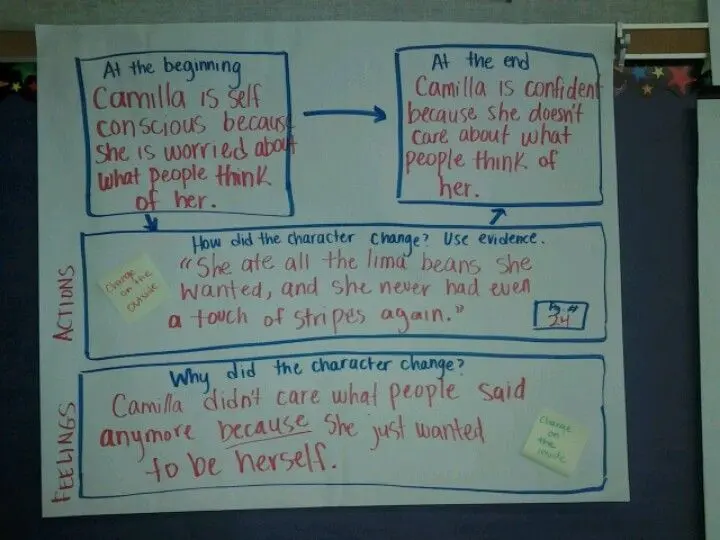 At the beginning
Camilla is self
conscious because
she is worried about
what people think
of her.
At the end
Camilla is confident
because she doesn't
care about what
people think of
her.
ACTIONS
How did the character change? Use evidence.
"She ate all the lima beans she
wanted, and she never had even
a touch of stripes again."
Change
on the
outside
24
FEELINGS
Why did the character change?
Camilla didn't care what people said
anymore because she just wanted
to be herself.
Change
on
the
inside